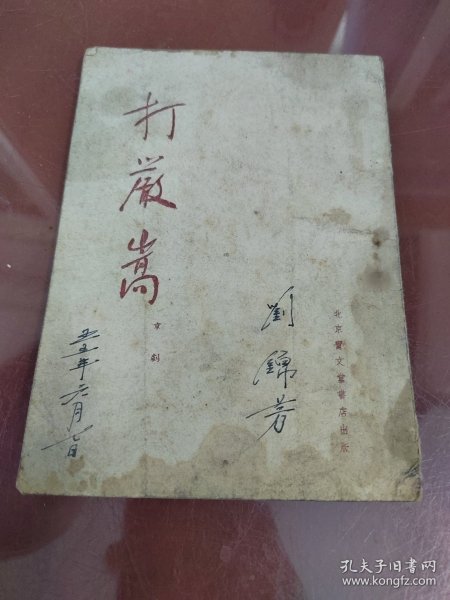 打嚴嵩
京劇
北京寶文堂書店出版
劉錦芳
五五年六月七日
孔夫子旧书网
www.kongfz.com